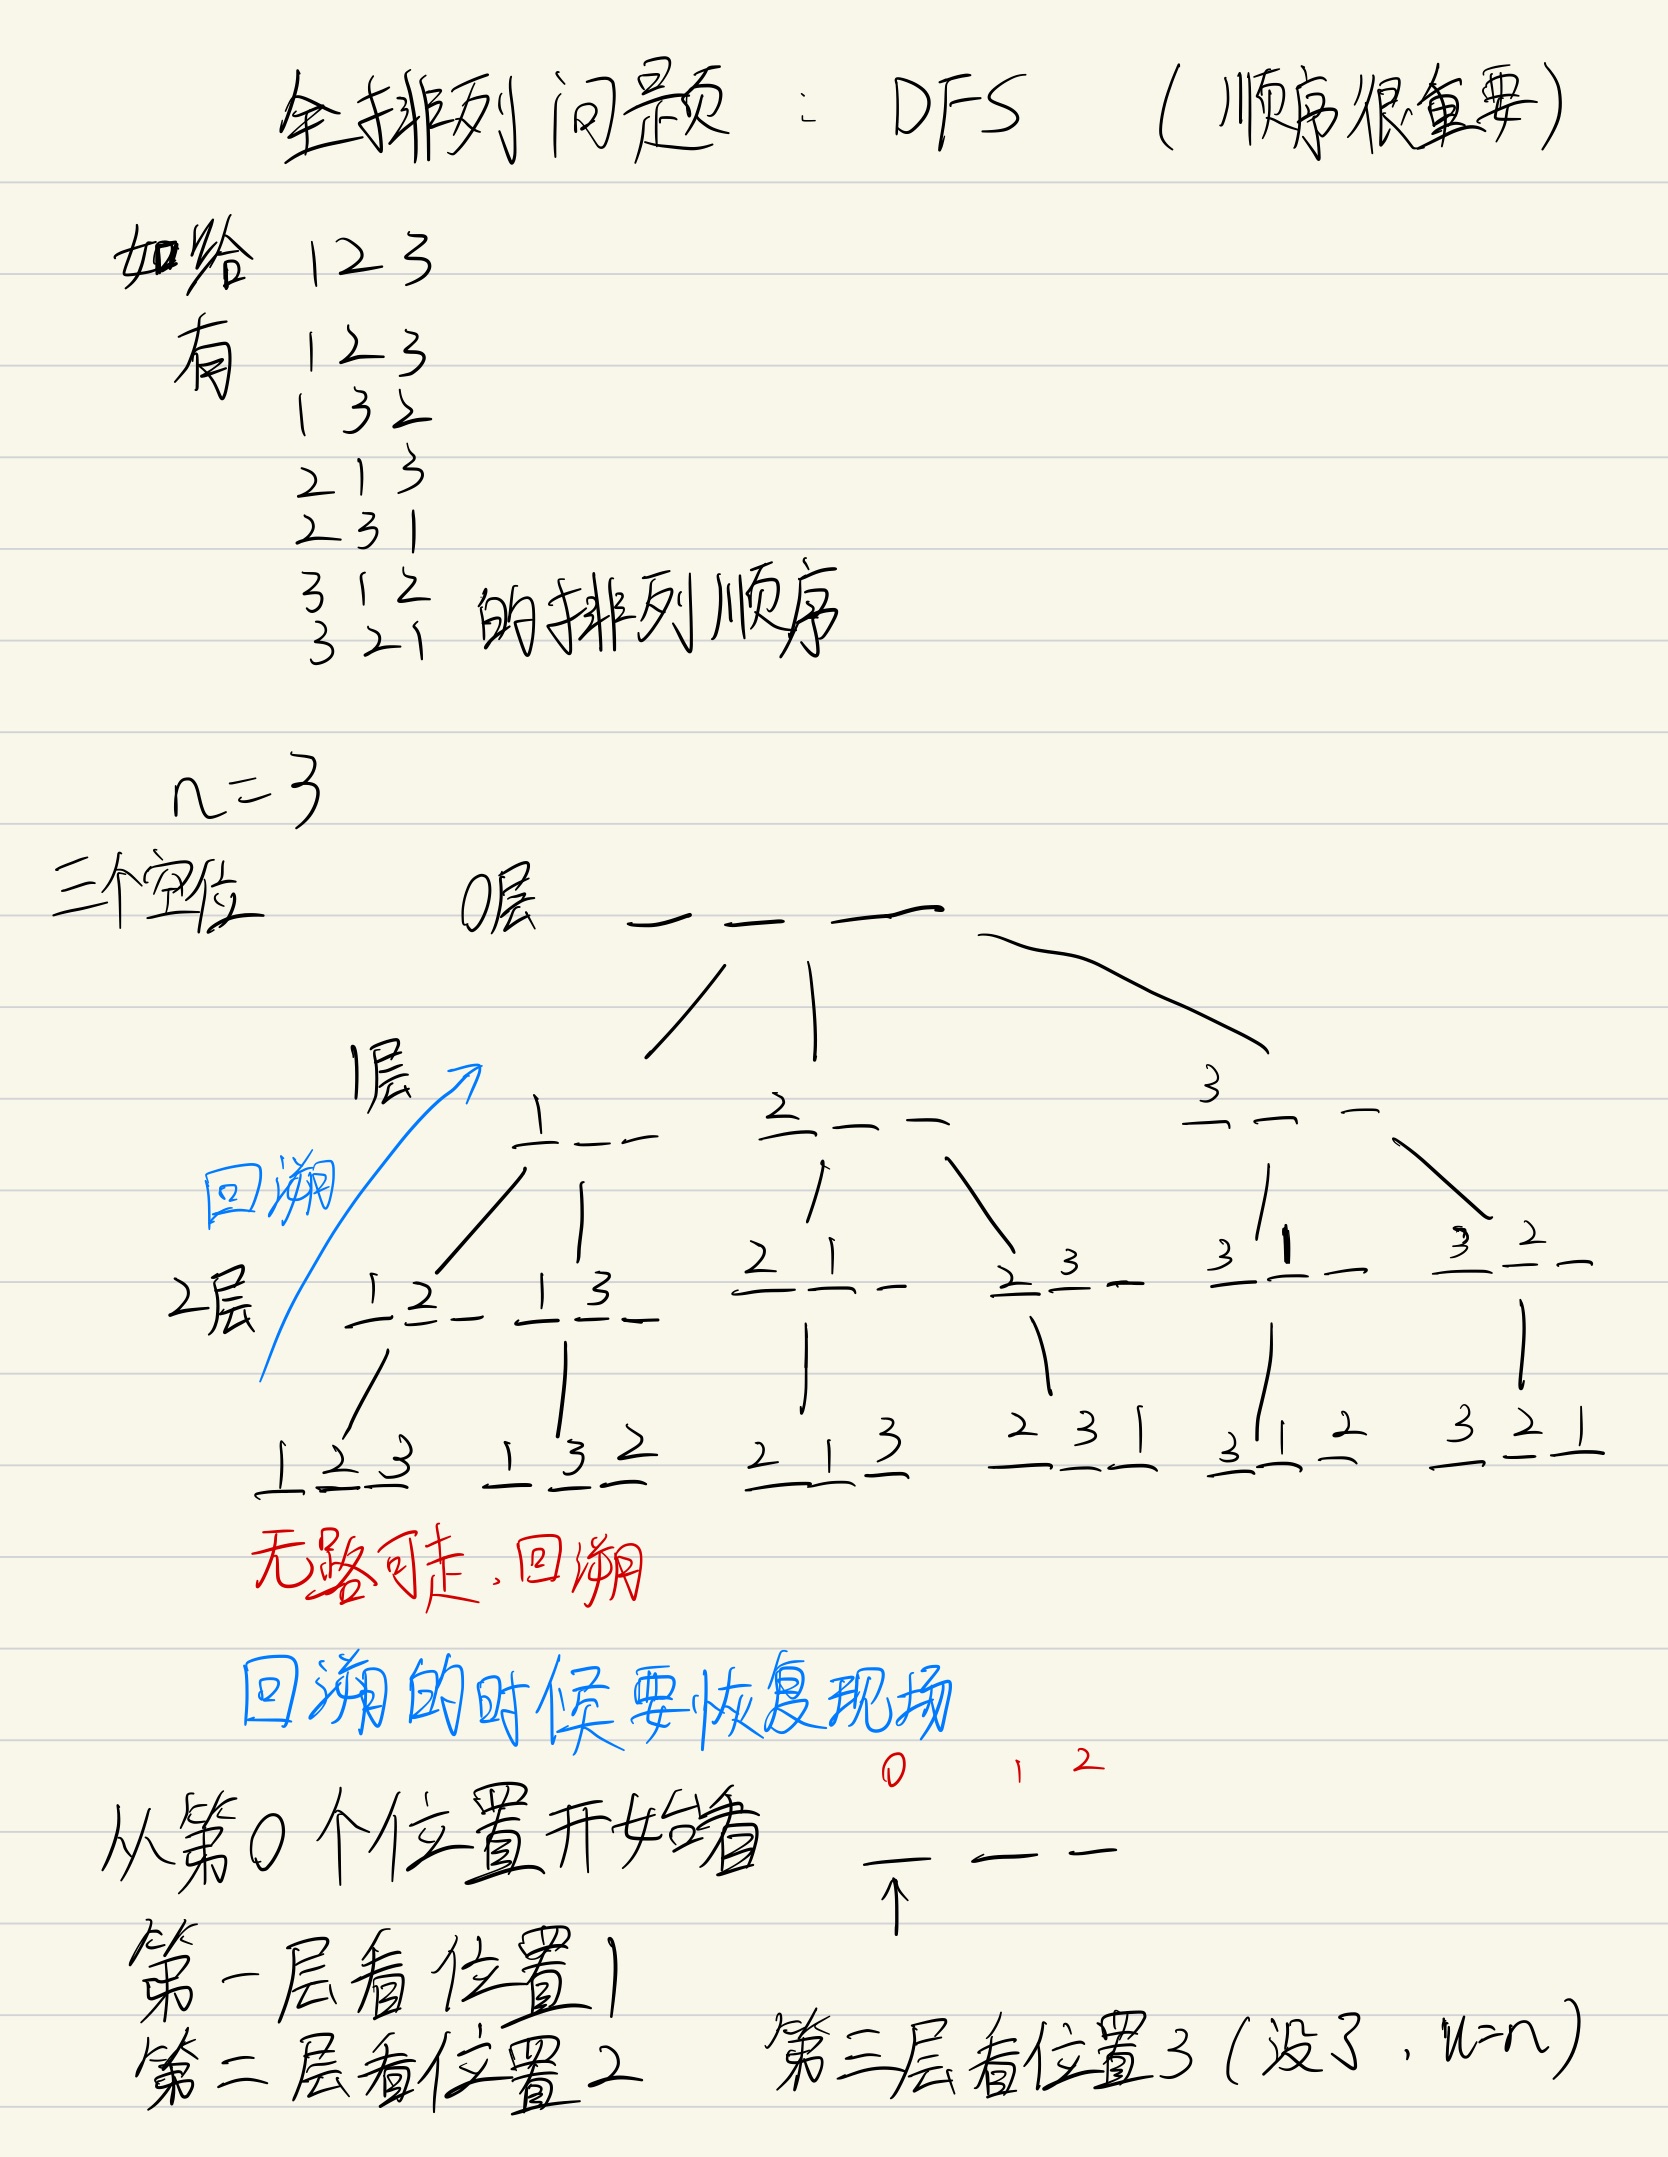 全排列问题：DFS （顺序很重要）
如给 1 2 3
有 1 2 3
1 3 2
2 1 3
2 3 1
3 1 2
3 2 1 的排列顺序
n=3
三个空位 0层 _ _ _
1层 1 _ _ 2 _ _ 3 _ _
回溯
2层 1 2 _ 1 3 _ 2 1 _ 2 3 _ 3 1 _ 3 2 _
1 2 3 1 3 2 2 1 3 2 3 1 3 1 2 3 2 1
无路可走，回溯
回溯的时候要恢复现场
0 1 2
从第0个位置开始看 _ _ _
↑
第一层看位置1
第二层看位置2 第三层看位置3（没了，u=n）